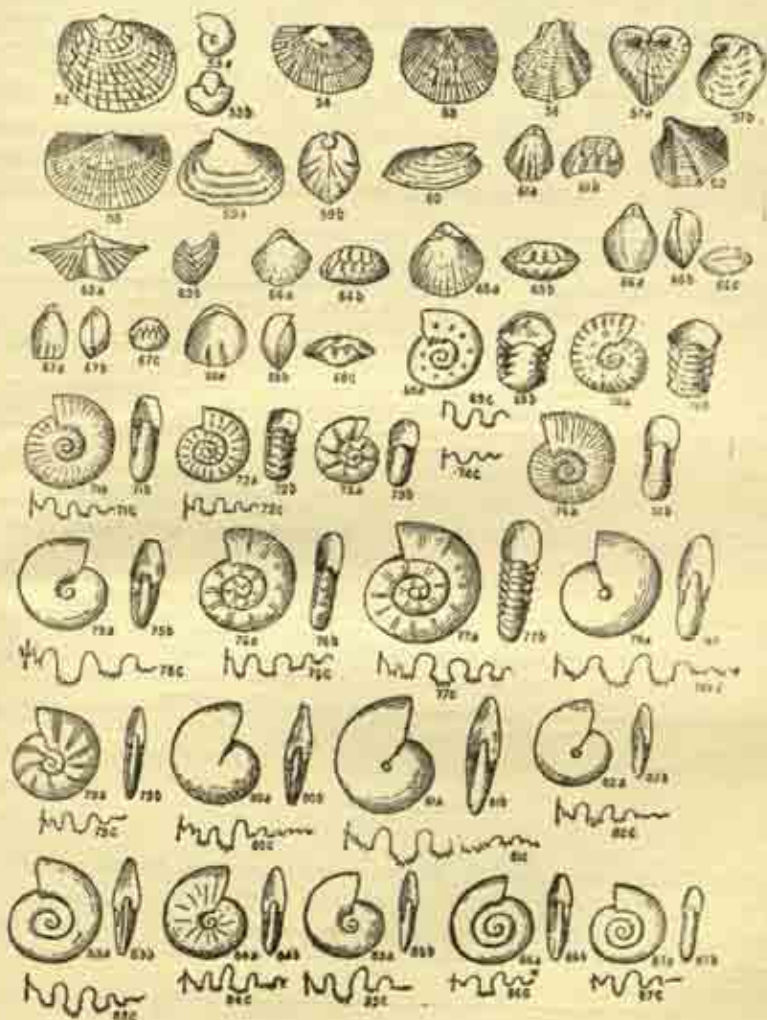 52 53a 53b 54 56 57a 57b
59a 59b 60 61a 61b 62
63a 63b 64a 64b 65a 65b 66a 66b 66c
67a 67b 67c 68a 68b 68c 69a 69b 69c
71a 71b 71c 72a 72b 72c 73a 73b 74c
75a 75b 75c 76a 76b 76c 77a 77b 77c
79a 79b 79c 80a 80b 80c 81a 81b 81c 82a 82b
83a 83b 83c 84a 84b 84c 85a 85b 85c 86a 86b 86c 87a 87b 87c